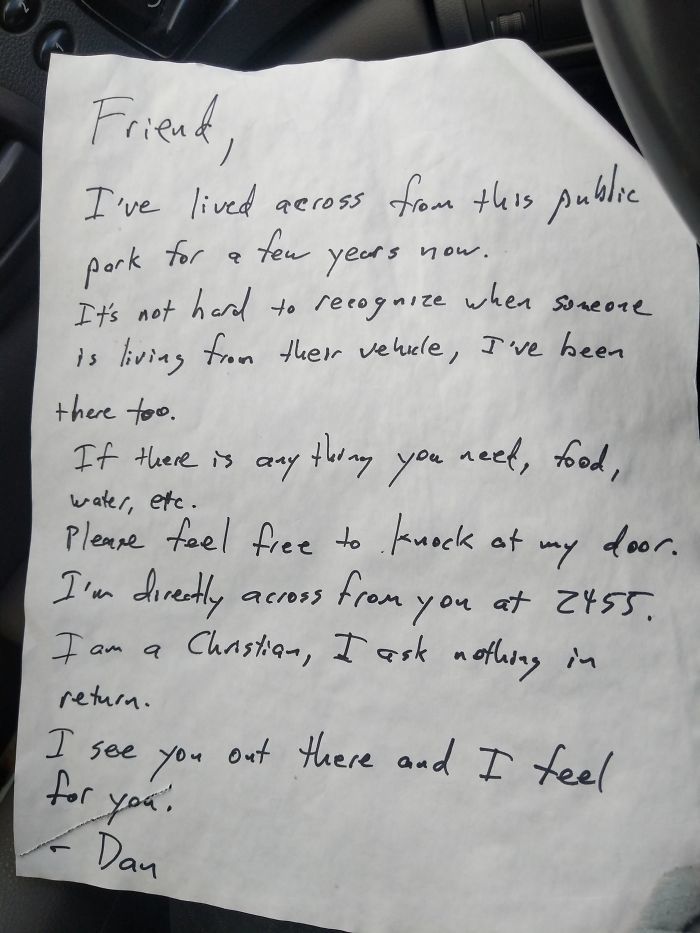 Friend,
I've lived across from this public
park for a few years now.
It's not hard to recognize when someone
is living from their vehicle, I've been
there too.
If there is any thing you need, food,
water, etc.
Please feel free to knock at my door.
I'm directly across from you at 2455.
I am a Christian, I ask nothing in
return.
I see you out there and I feel
for you.
- Dan